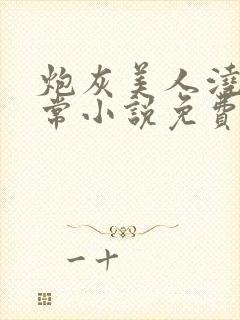 炮灰美人澆
常小說免費
一十